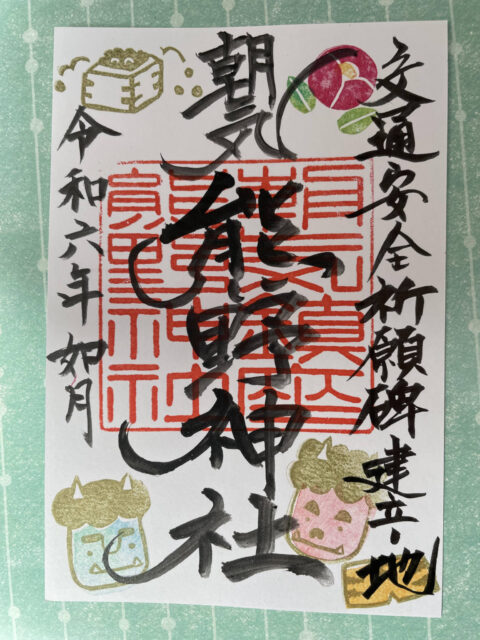 交通安全祈願碑建立之地
朝気
熊野神社
令和六年如月